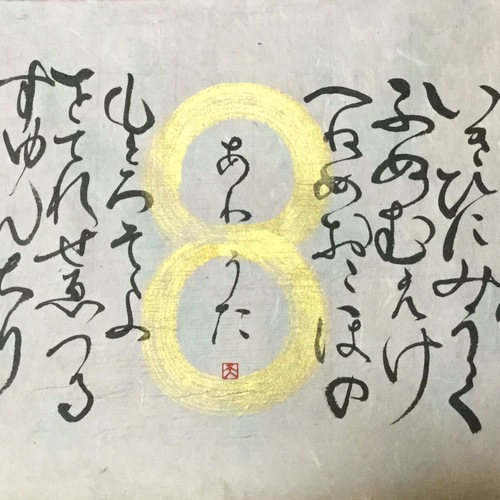 いきひにみうく
ふぬむえけ
へねめおこほの
あわうた
もとろそよ
をてれせゑつる
すゆんちり